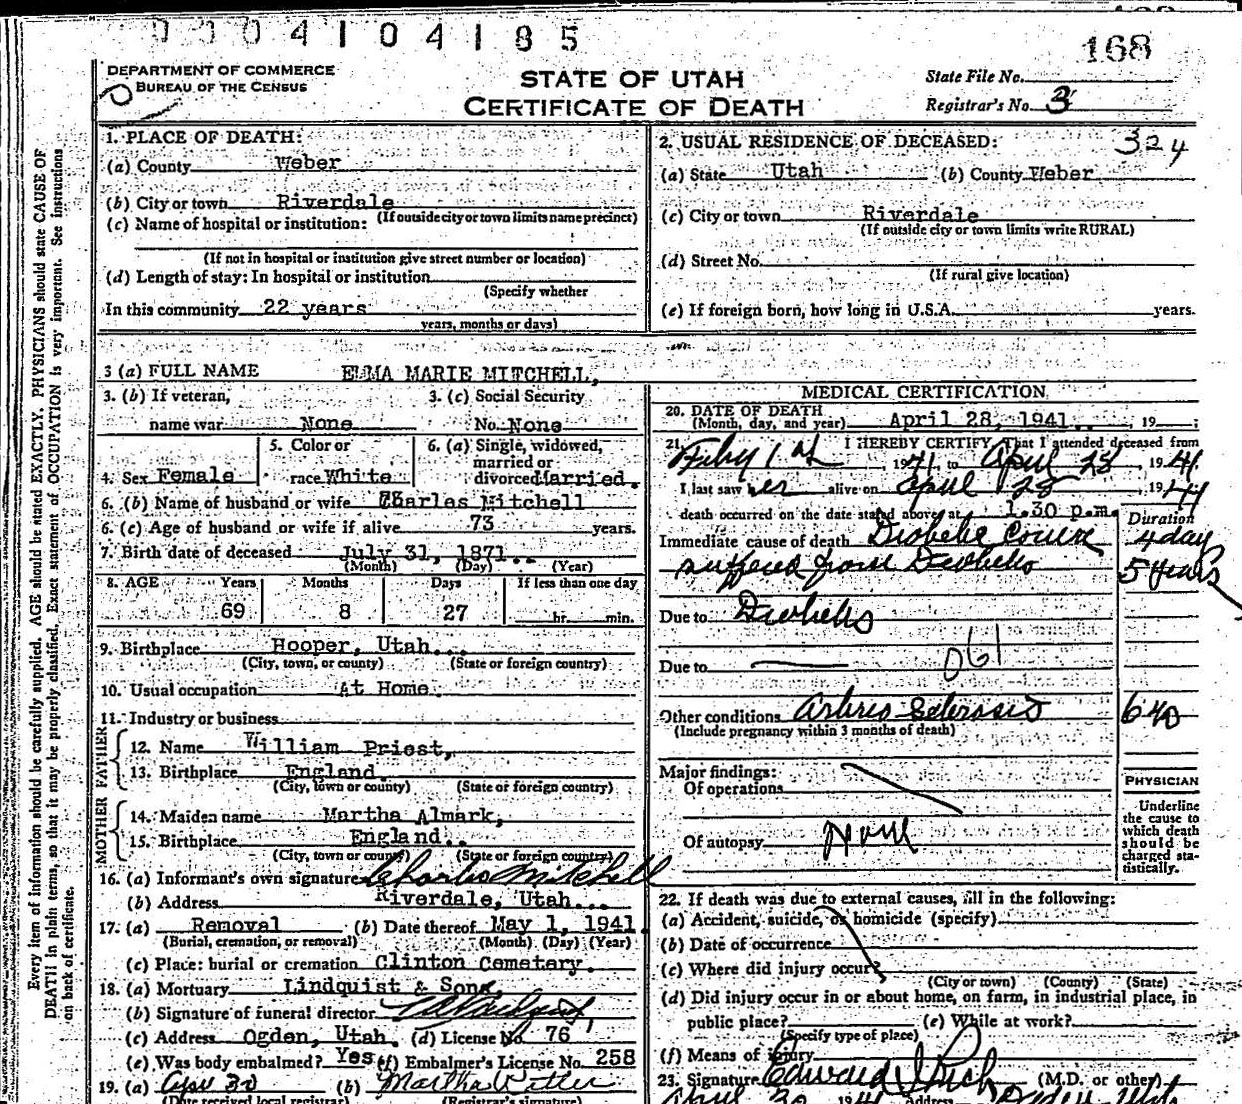 0004104185
168
DEPARTMENT OF COMMERCE
BUREAU OF THE CENSUS
STATE OF UTAH
CERTIFICATE OF DEATH
State File No.
Registrar's No. 3
Every item of information should be carefully supplied. AGE should be stated EXACTLY. PHYSICIANS should state CAUSE OF
DEATH in plain terms, so that it may be properly classified. Exact statement of OCCUPATION is very important. See instructions
on back of certificate.
1. PLACE OF DEATH:
(a) County Weber
(b) City or town Riverdale
(If outside city or town limits name precinct)
(c) Name of hospital or institution:
(If not in hospital or institution give street number or location)
(d) Length of stay: In hospital or institution
(Specify whether
In this community 22 years
years, months or days)
2. USUAL RESIDENCE OF DECEASED: 324
(a) State Utah (b) County Weber
(c) City or town Riverdale
(If outside city or town limits write RURAL)
(d) Street No.
(If rural give location)
(e) If foreign born, how long in U.S.A. years.
3 (a) FULL NAME EMMA MARIE MITCHELL,
3. (b) If veteran, 3. (c) Social Security
name war None No. None
4. Sex Female 5. Color or race White 6. (a) Single, widowed, married or divorced Married.
6. (b) Name of husband or wife Charles Mitchell
6. (c) Age of husband or wife if alive 73 years.
7. Birth date of deceased July 31, 1871..
(Month) (Day) (Year)
8. AGE Years Months Days If less than one day
69 8 27 hr. min.
9. Birthplace Hooper, Utah...
(City, town, or county) (State or foreign country)
10. Usual occupation At Home.
11. Industry or business
FATHER
12. Name William Priest,
13. Birthplace England.
(City, town or county) (State or foreign country)
MOTHER
14. Maiden name Martha Almark,
15. Birthplace England..
(City, town or county) (State or foreign country)
16. (a) Informant's own signature Charles Mitchell
(b) Address Riverdale, Utah...
17. (a) Removal (b) Date thereof May 1, 1941.
(Burial, cremation, or removal) (Month) (Day) (Year)
(c) Place: burial or cremation Clinton Cemetery.
18. (a) Mortuary Lindquist & Sons,
(b) Signature of funeral director
(c) Address Ogden, Utah. (d) License No. 76
(e) Was body embalmed? Yes (f) Embalmer's License No. 258
19. (a) Apr 30 (b) Martha
(Date received local registrar) (Registrar's signature)
MEDICAL CERTIFICATION
20. DATE OF DEATH
(Month, day, and year) April 28, 1941.. 19
21. I HEREBY CERTIFY, That I attended deceased from
, 1941, to April 28, 1941.
I last saw her alive on April 28, 1941
death occurred on the date stated above at 1.30 p.m.
Duration
Immediate cause of death Diabetic Coma 4 day
suffered from Diabetes 5 years
Due to Diabetes
Due to 061
Other conditions Arterio Sclerosis
(Include pregnancy within 3 months of death)
Major findings:
Of operations
Of autopsy None
PHYSICIAN
Underline
the cause to
which death
should be
charged sta-
tistically.
22. If death was due to external causes, fill in the following:
(a) Accident, suicide, or homicide (specify)
(b) Date of occurrence
(c) Where did injury occur?
(City or town) (County) (State)
(d) Did injury occur in or about home, on farm, in industrial place, in
public place? (e) While at work?
(Specify type of place)
(f) Means of injury
23. Signature Edward I Rich (M.D. or other)
April 30 1941 Address Ogden Utah